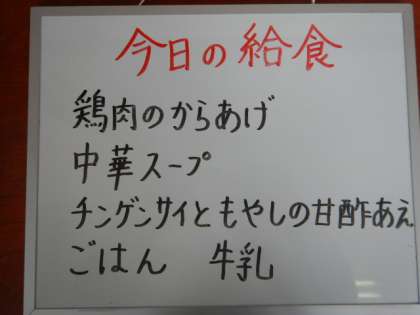 今日の給食
鶏肉のからあげ
中華スープ
チンゲンサイともやしの甘酢あえ
ごはん 牛乳